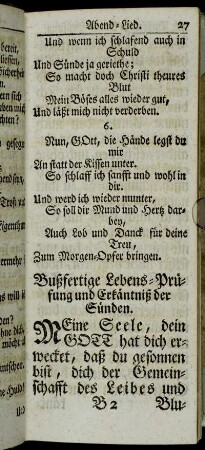 Abend-Lied. 27
Und wenn ich schlafend auch in
Schuld
Und Sünde ja geriethe;
So macht doch Christi theures
Blut
Mein Böses alles wieder gut,
Und läßt mich nicht verderben.
6.
Nun, GOtt, die Hände legst du
mir
An statt der Kissen unter.
So schlaff ich sanfft und wohl in
dir.
Und werd ich wieder munter,
So soll dir Mund und Hertz dar-
bey,
Auch Lob und Danck für deine
Treu,
Zum Morgen-Opfer bringen.
Bußfertige Lebens-Prü-
fung und Erkäntniß der
Sünden.
MEine Seele, dein
GOTT hat dich er-
wecket, daß du gesonnen
bist, dich der Gemein-
schafft des Leibes und
B 2 Blu-